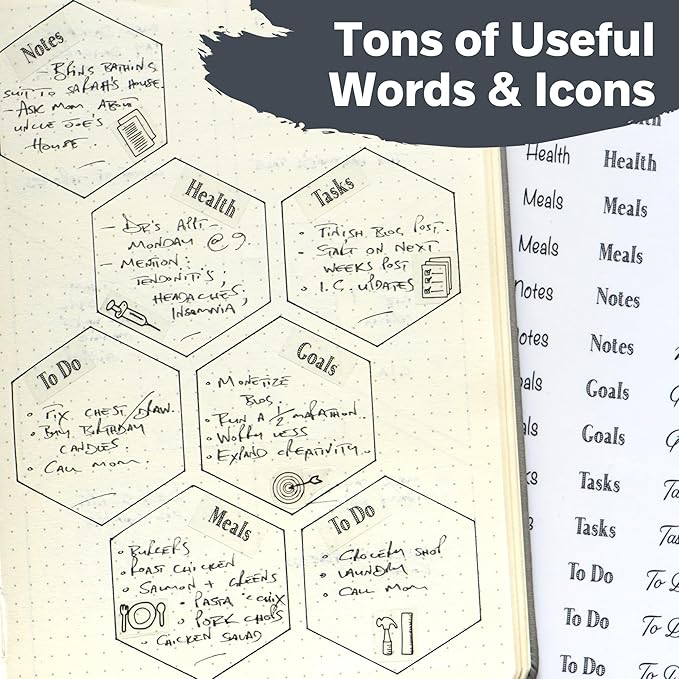 Tons of Useful
Words & Icons
Notes
- BRING BATHING
SUIT TO SARAH'S HOUSE.
- ASK MOM ABOUT
UNCLE JOE'S
HOUSE.
Health
- DR'S APPT -
MONDAY @ 9.
- MENTION:
TENDONITIS,
HEADACHES,
INSOMNIA
Tasks
• FINISH BLOG POST.
• START ON NEXT
WEEKS POST
• I.G. UPDATES
To Do
• FIX CHEST/DRAW.
• BUY BIRTHDAY
CANDLES.
• CALL MOM.
Goals
• MONETIZE
BLOG.
• RUN A 1/2 MARATHON.
• WORRY LESS
• EXPAND CREATIVITY.
Meals
• BURGERS
• ROAST CHICKEN
• SALMON + GREENS
• PASTA + CHIX
• PORK CHOPS
• CHICKEN SALAD
To Do
• GROCERY SHOP
• LAUNDRY
• CALL MOM
Health Health
Meals Meals
Meals Meals
Notes Notes
Notes Notes
Goals
Goals
Tasks
Tasks
To Do To D
To Do To D
To Do To D